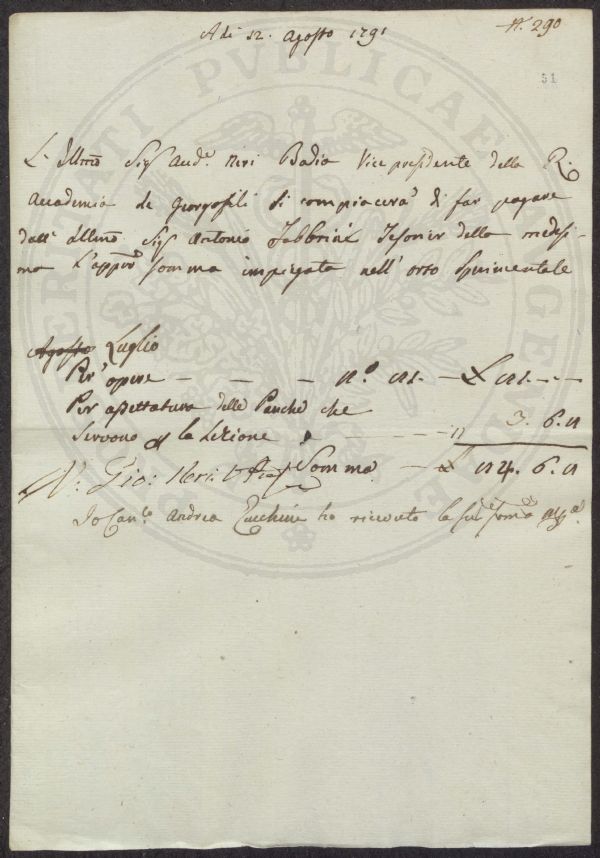 N.° 290
Adi 12. Agosto 1791
31
L'Illmo Sigr Aud.e Neri Badia Vice presidente della R.
Accademia de Georgofili si compiacerà di far pagare
dall' Illmo Sigr Antonio Fabbrini Tesorier della medesi-
ma l'appiè somma impiegata nell' orto sperimentale
Agosto Luglio
Per opere — — — n.°
Per assettatura delle Panche che
servono la Lezione 3. 6. 
Gio: Neri Somma — £
Io Can.co Andrea Zucchini ho ricevuto la somma
PUBLICAE